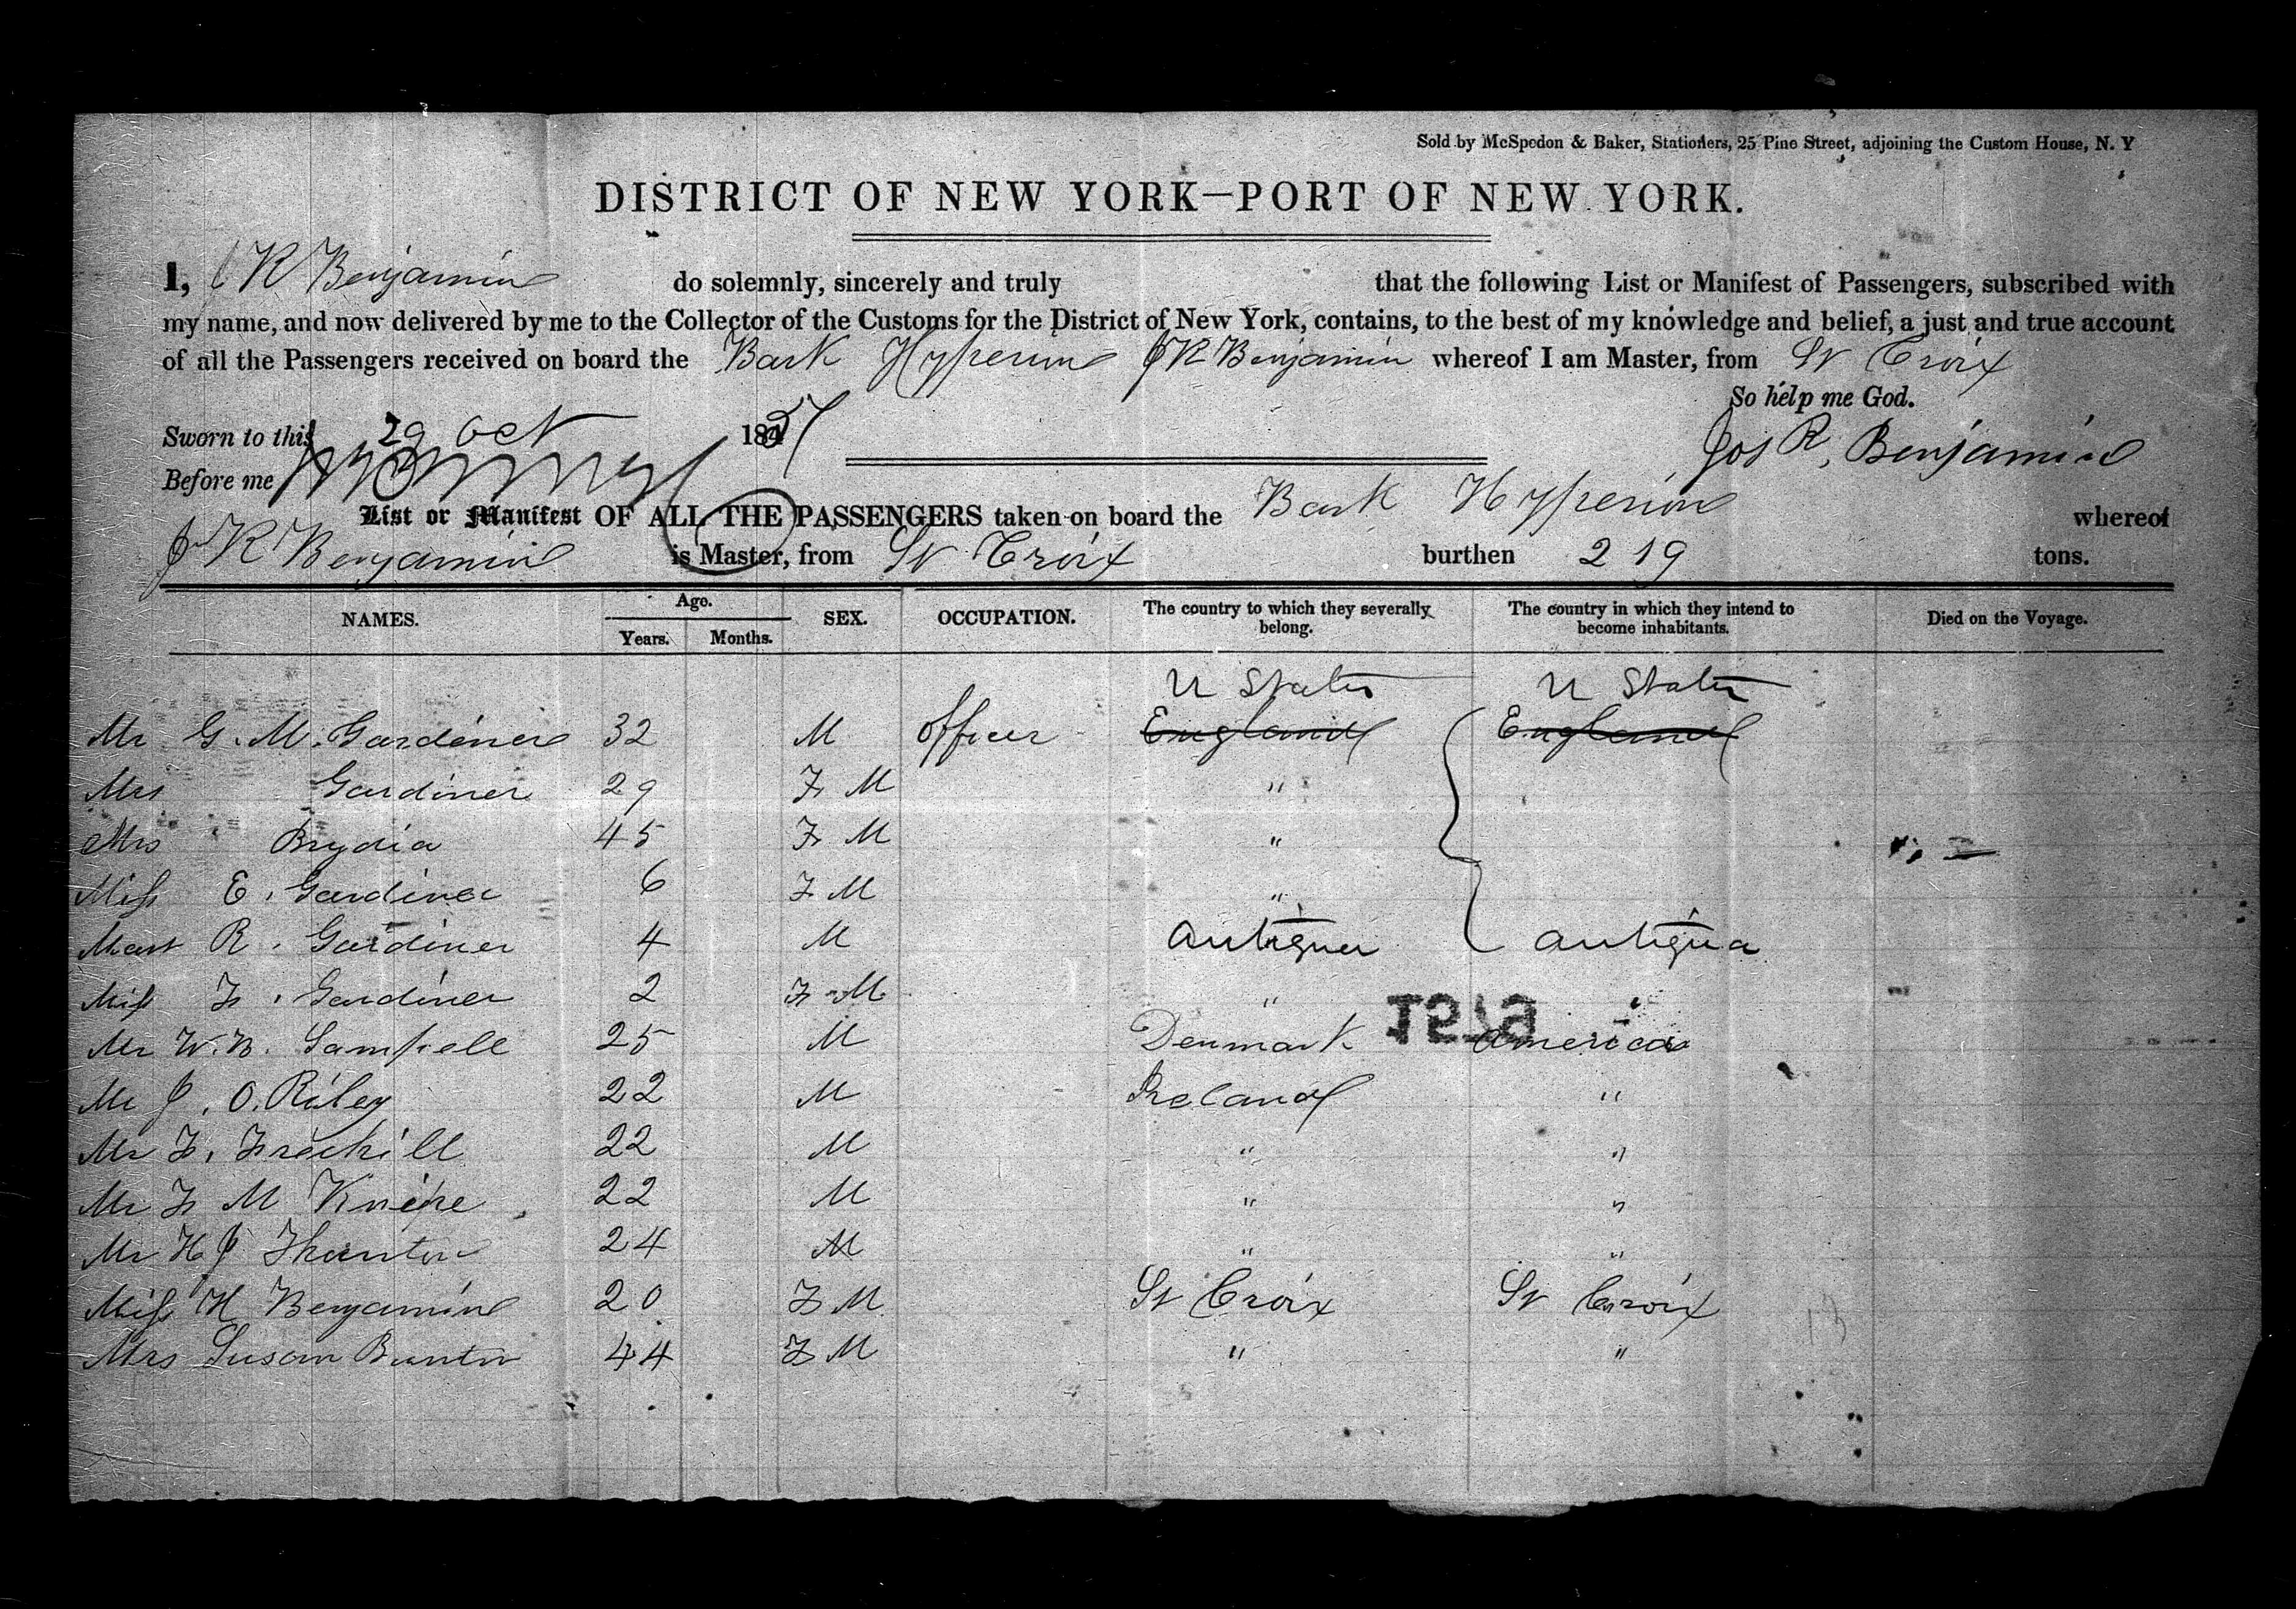 Sold by McSpedon & Baker, Stationers, 25 Pine Street, adjoining the Custom House, N. Y
DISTRICT OF NEW YORK—PORT OF NEW YORK.
I, J R Benjamin do solemnly, sincerely and truly that the following List or Manifest of Passengers, subscribed with
my name, and now delivered by me to the Collector of the Customs for the District of New York, contains, to the best of my knowledge and belief, a just and true account
of all the Passengers received on board the Bark Hyperion J R Benjamin whereof I am Master, from St Croix
So help me God.
Sworn to this 29 Oct 1851
Jos R, Benjamin
Before me
List or Manifest OF ALL THE PASSENGERS taken on board the Bark Hyperion whereof
J R Benjamin is Master, from St Croix burthen 219 tons.
NAMES. Age. Years. Months. SEX. OCCUPATION. The country to which they severally belong. The country in which they intend to become inhabitants. Died on the Voyage.
U States U States
Mr G. M. Gardiner 32 M Officer England England
Mrs Gardiner 29 F M "
Mrs Brydia 45 F M "
Miss E. Gardiner 6 F M "
Mast R. Gardiner 4 M Antigua Antigua
Miss F. Gardiner 2 F M " "
1219
Mr W. B. 25 M Denmark America
Mr J. O. Riley 22 M Ireland "
Mr F. Frechill 22 M " "
Mr F M 22 M " "
Mr H J 24 M " "
Miss H Benjamin 20 F M St Croix St Croix
Mrs Susan 44 F M " "